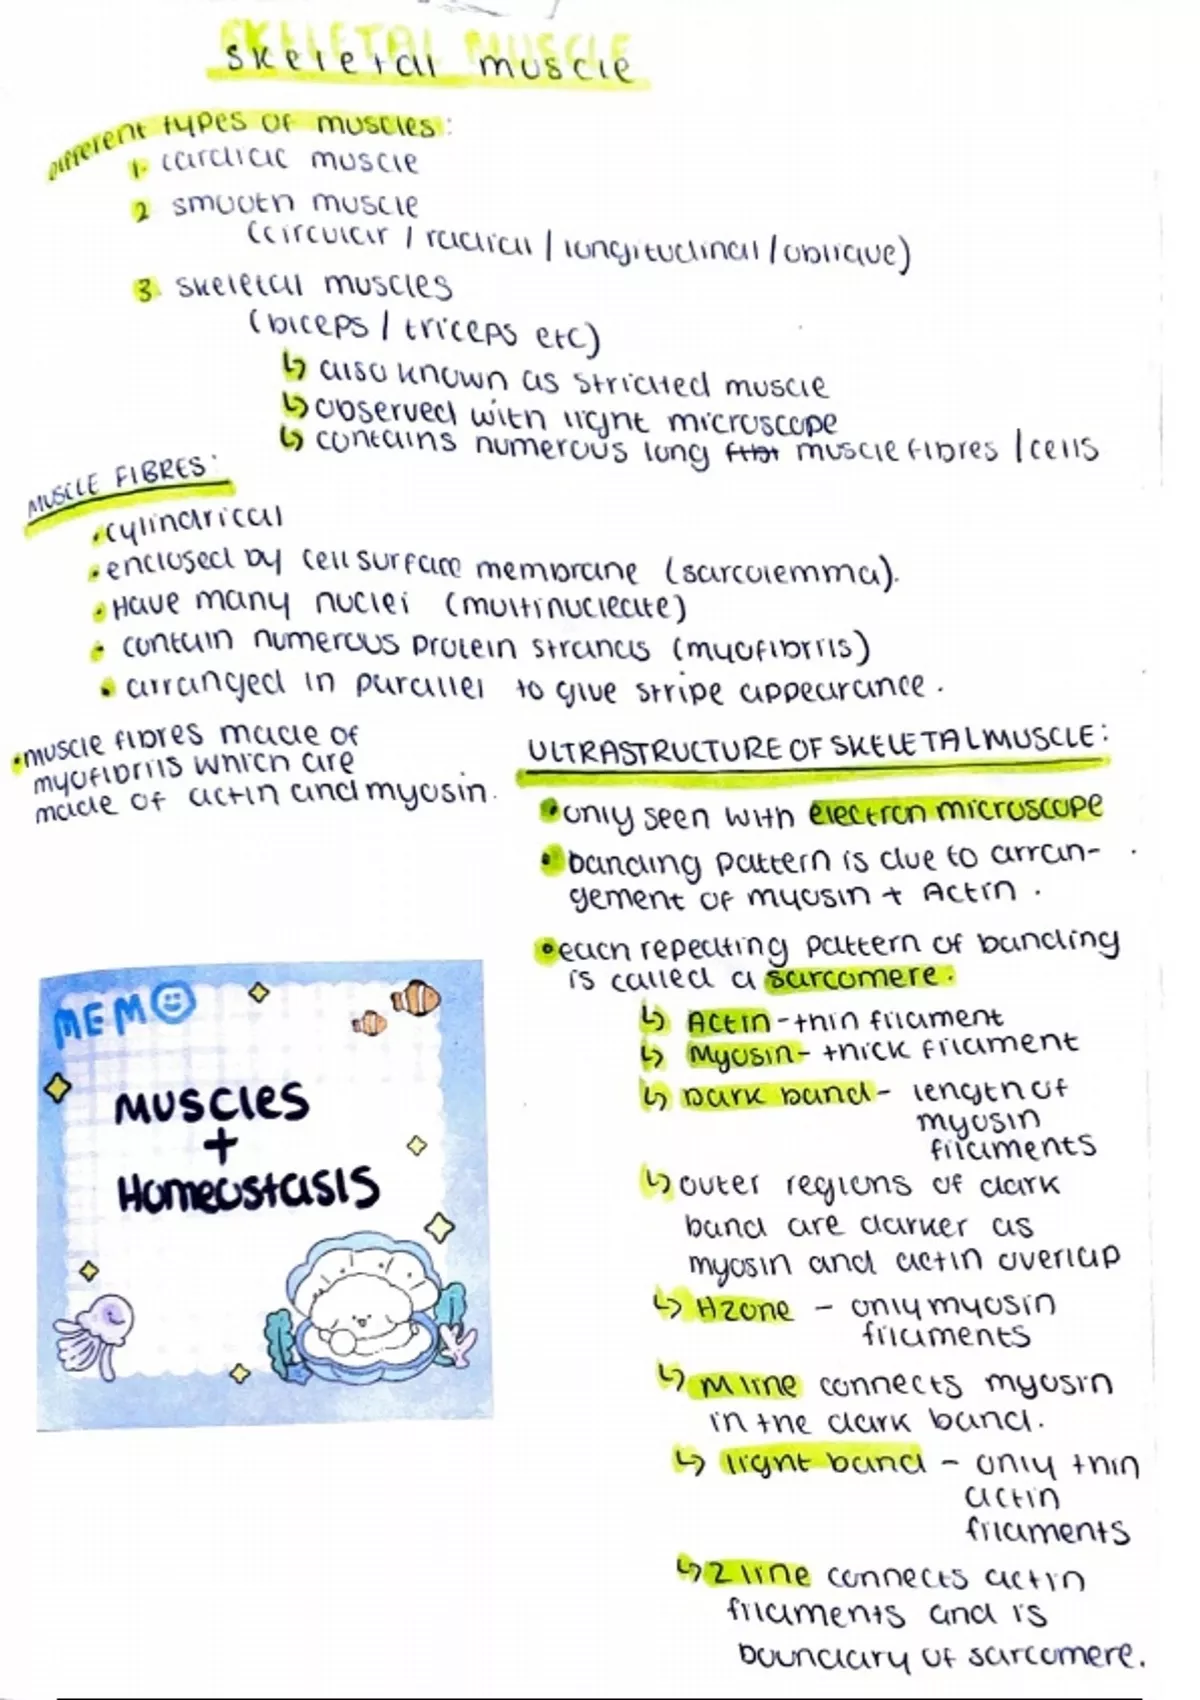 SKELETAL MUSCLE
skeletal muscle
Different types of muscles:
1. cardiac muscle
2 smooth muscle
(circular / radial / longitudinal / oblique)
3. skeletal muscles
(biceps / triceps etc)
↳ also known as striated muscle
↳ observed with light microscope
↳ contains numerous long muscle fibres / cells
MUSCLE FIBRES:
• cylindrical
• enclosed by cell surface membrane (sarcolemma).
• Have many nuclei (multinucleate)
• contain numerous protein strands (myofibrils)
• arranged in parallel to give stripe appearance.
• muscle fibres made of
myofibrils which are
made of actin and myosin.
ULTRASTRUCTURE OF SKELETAL MUSCLE:
• only seen with electron microscope
• banding pattern is due to arran-
gement of myosin + Actin.
• each repeating pattern of banding
is called a sarcomere.
↳ Actin - thin filament
↳ Myosin - thick filament
↳ Dark band - length of
myosin
filaments
↳ outer regions of dark
band are darker as
myosin and actin overlap
↳ H zone - only myosin
filaments
↳ M line connects myosin
in the dark band.
↳ light band - only thin
actin
filaments
↳ Z line connects actin
filaments and is
boundary of sarcomere.
MEMO
Muscles
+
Homeostasis